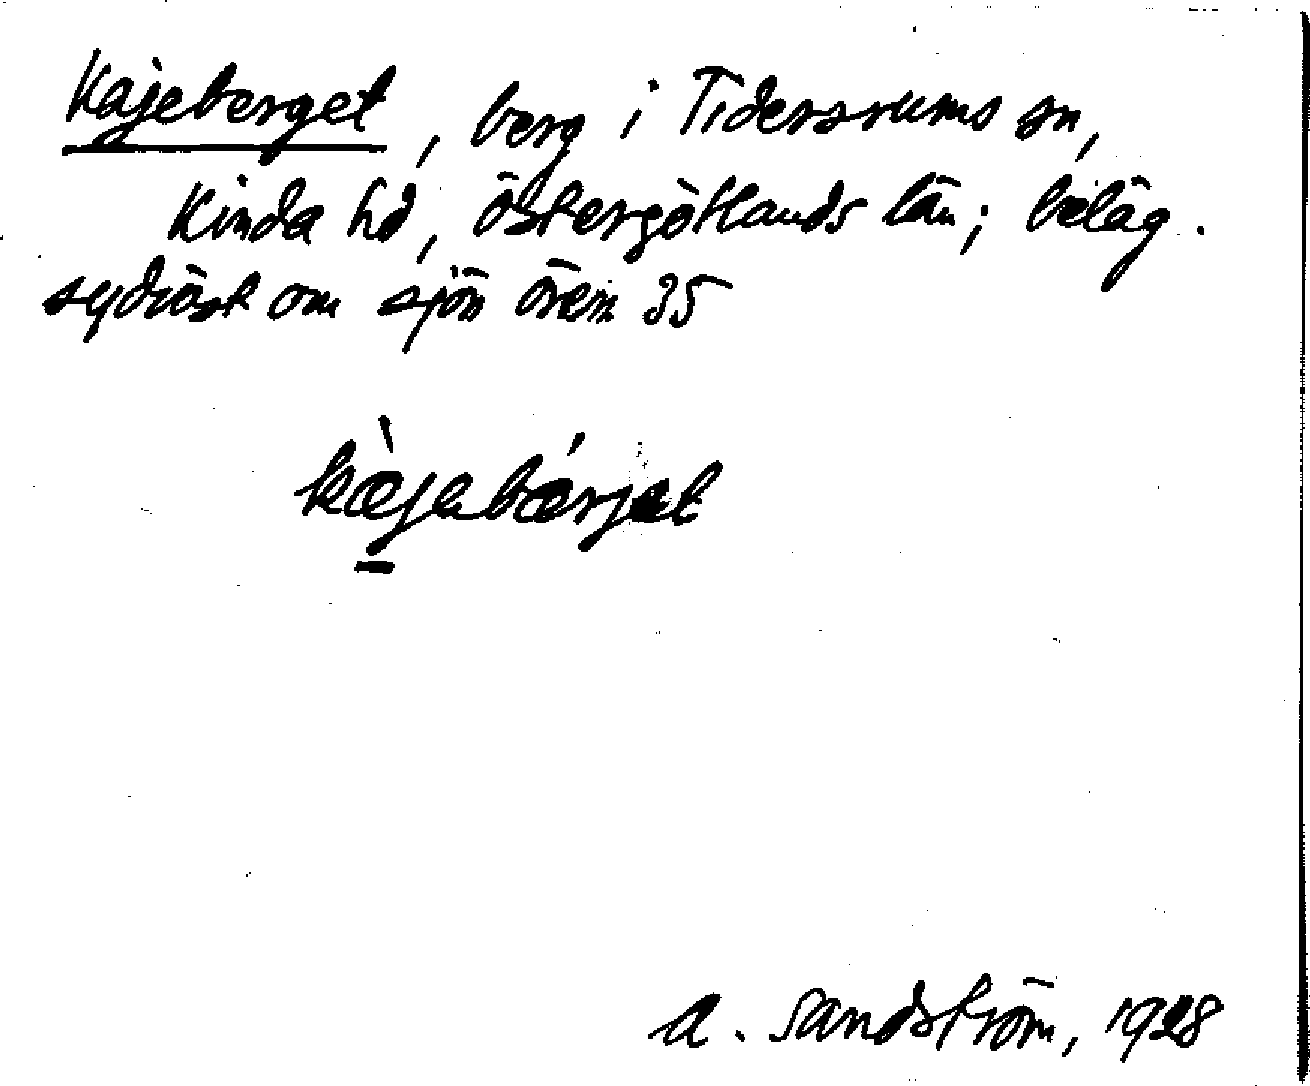 Kajeberget, berg i Tidersrums sn,
Kinda hd, Östergötlands län; beläg.
sydväst om sjön Ören 35
kæ̀jabǽrjet
A. Sandström, 1928